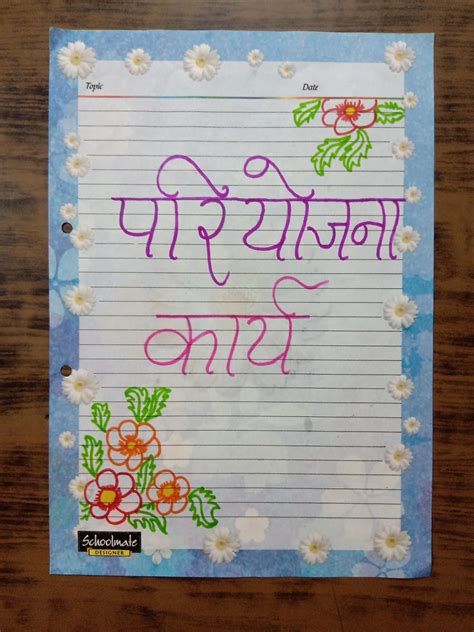 Topic Date
परियोजना
कार्य
Schoolmate
DESIGNER